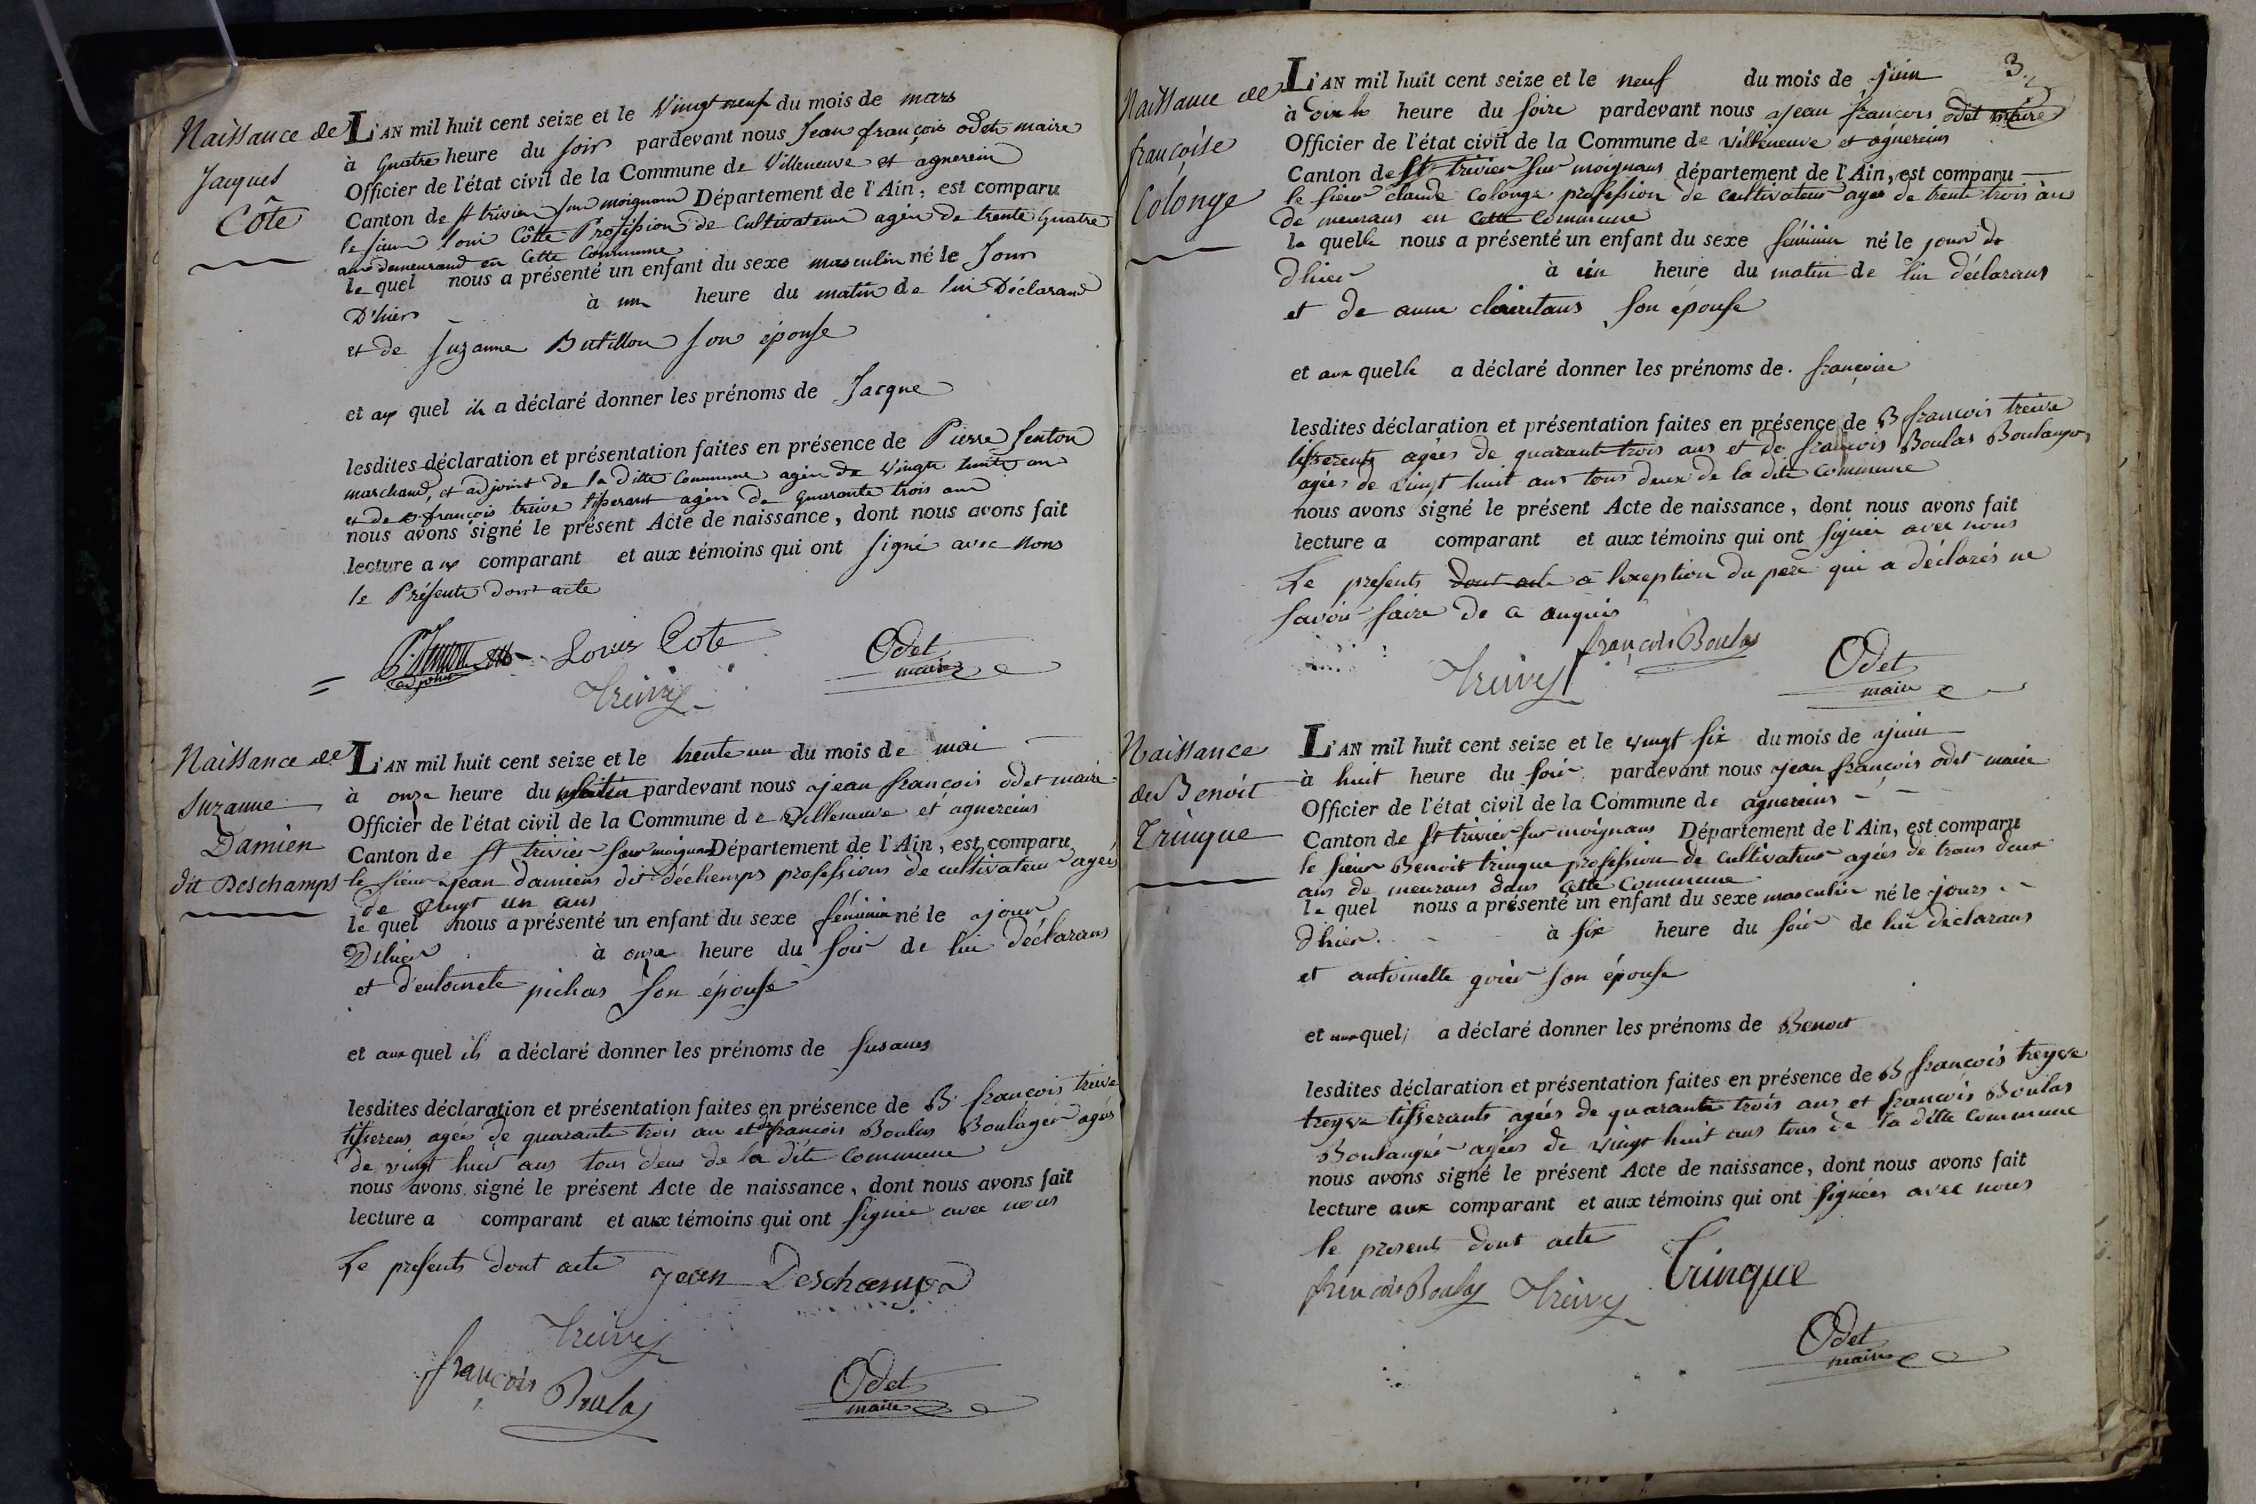 Naissance de
Jacques
Côte
L'AN mil huit cent seize et le Vingt neuf du mois de mars
à quatre heure du soir pardevant nous Jean françois odet maire
Officier de l'état civil de la Commune de Villeneuve et agnerein
Canton de st trivier sur moignans Département de l'Ain, est comparu
le sieur Loui Côtte Profession de Cultivateur agée de trente quatre
ans demeurand en Cette Commune
le quel nous a présenté un enfant du sexe masculin né le Jour
D'hier à une heure du matin de lui Déclarand
et de Suzanne Butillon son épouse
et au quel il a déclaré donner les prénoms de Jacque
lesdites déclaration et présentation faites en présence de Pierre Senton
marchand, et adjoint de la ditte Commune agée de Vingt huit ans
et de B françois treive tisserant agée de Quarante trois ans
nous avons signé le présent Acte de naissance, dont nous avons fait
lecture au comparant et aux témoins qui ont signé avec nous
le Présente dont acte
adjoint Louis Cote Odet
maire
Treive
Naissance de
Suzanne
Damien
dit Deschamps
L'AN mil huit cent seize et le trente un du mois de mai
à onze heure du matin pardevant nous jean francois odet maire
Officier de l'état civil de la Commune de Villeneuve et agnereins
Canton de st trivier sur moignans Département de l'Ain, est comparu
le sieur jean damiens dit déchemps professions de cultivateur agées
de vingt un ans
le quel nous a présenté un enfant du sexe féminin né le jour
D'hier à onze heure du soir de lui déclarans
et d'entoinete pichas son épouse
et aux quel il a déclaré donner les prénoms de susanes
lesdites déclaration et présentation faites en présence de B francois treive
tisserens agées de quarante trois an et de francois Boulas Boulager agés
de vingt huit ans tous deux de la dite commune
nous avons signé le présent Acte de naissance, dont nous avons fait
lecture a comparant et aux témoins qui ont signée avec nous
Le présents dont acte jean Deschamps
Treive
françois Boulas Odet
maire
3
Naissance de
françoise
Colonge
L'AN mil huit cent seize et le neuf du mois de juin
à heure du soire pardevant nous jean francois odet maire
Officier de l'état civil de la Commune de Villeneuve et agnereins
Canton de St trivier sur moignans département de l'Ain, est comparu
le sieur claude Colonge profession de cultivateur agée de trente trois ans
de meurans en cette commune
le quelle nous a présenté un enfant du sexe féminin né le jour de
dhier à un heure du matin de lui déclarans
et de anne clairetans son épouse
et aux quelle a déclaré donner les prénoms de francoise
lesdites déclaration et présentation faites en présence de B francois treive
tisserents agées de quarante trois ans et de francois Boulas Boulanger
agées de vingt huit ans tous deux de la dite commune
nous avons signé le présent Acte de naissance, dont nous avons fait
lecture a comparant et aux témoins qui ont signée avec nous
Le présents dont acte a l'exeption du pere qui a déclarés ne
savoir faire de ce anquis
françois Boulas
Treive Odet
maire
Naissance
de Benoit
Trinque
L'AN mil huit cent seize et le vingt six du mois de juin
à huit heure du soir pardevant nous jean francois odet maire
Officier de l'état civil de la Commune de agnereins
Canton de st trivier sur moignans Département de l'Ain, est comparu
le sieur Benoit trinque profession de cultivateur agées de trans deux
ans de meurans dans cette commune
le quel nous a présenté un enfant du sexe masculin né le jours
dhier à six heure du soir de lui déclarans
et antoinette son épouse
et aux quel a déclaré donner les prénoms de Benoit
lesdites déclaration et présentation faites en présence de B francois treyve
treyve tisserants agées de quarante trois ans et francois Boulas
Boulangué agées de vingt huit ans tous de la ditte commune
nous avons signé le présent Acte de naissance, dont nous avons fait
lecture aux comparant et aux témoins qui ont signées avec nous
le present dont acte
françois Boulas Treive Trinque
Odet
maire